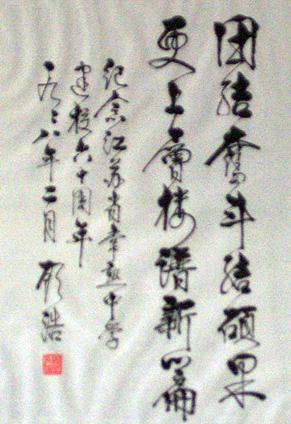 团结奋斗结硕果
更上层楼谱新篇
纪念江苏省中学
建校六十周年
一九九八年二月 顾浩